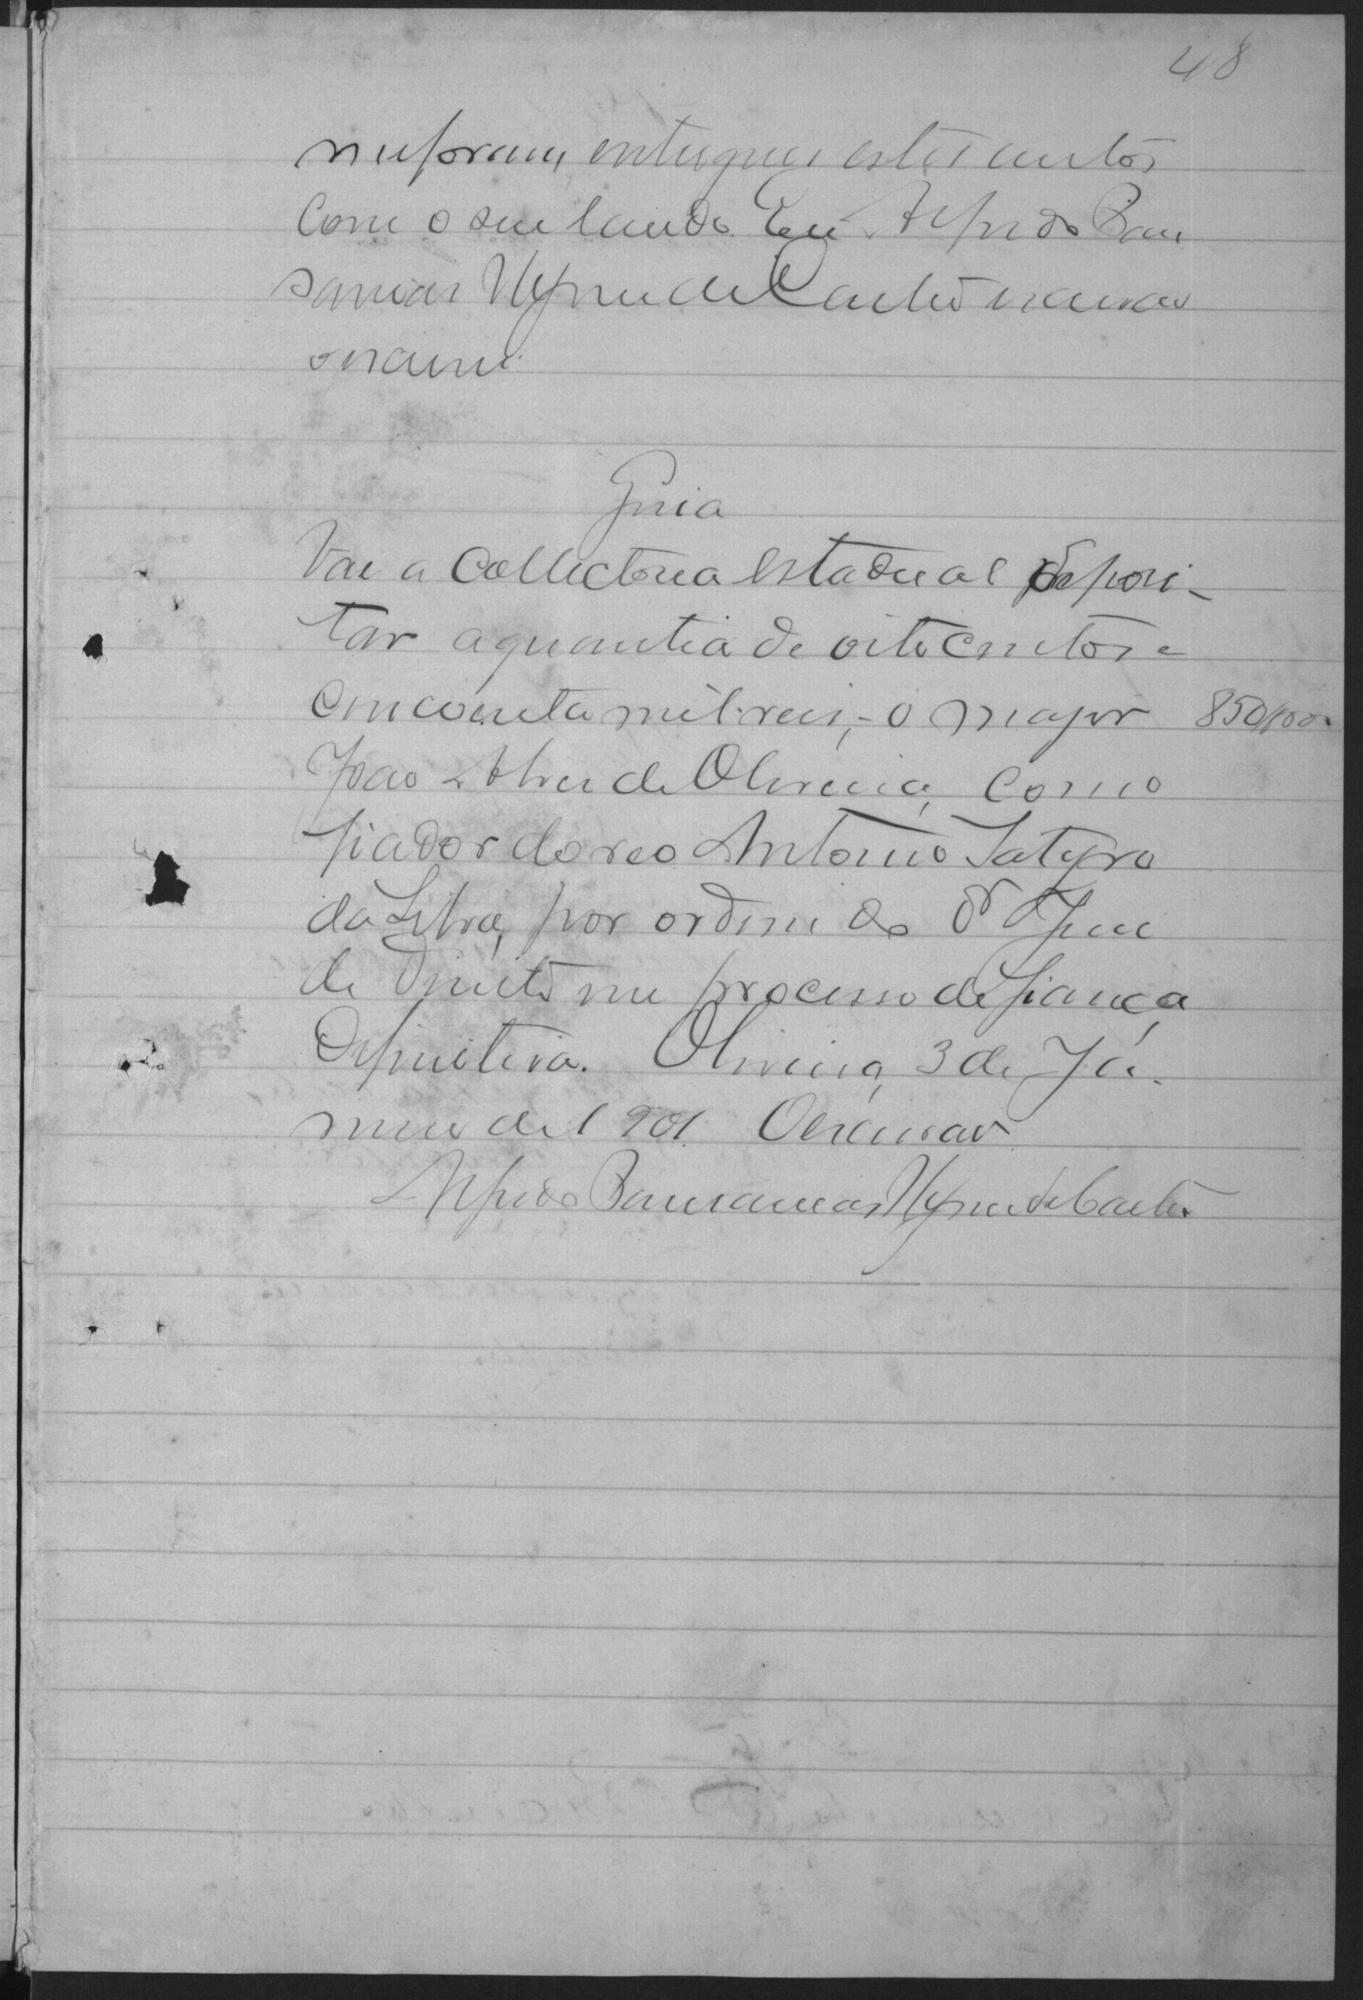 48
me foram entregues estes autos
com o seu laudo. Eu Alfredo Pau
sanias Alfonso de Castro escrivão
o escrevi.
Guia
Vae a Collectoria Estadual deposi-
tar a quantia de oitocentos e
cincoenta mil reis, - o major 850$000
João Alves de Oliveira, como
fiador do reo Antonio Satyro
da Silva, por ordem do Dr Juiz
de Direito no processo de fiança
definitiva. Oliveira, 3 de Ja-
neiro de 1901. O escrivão
Alfredo Pausanias de Castro